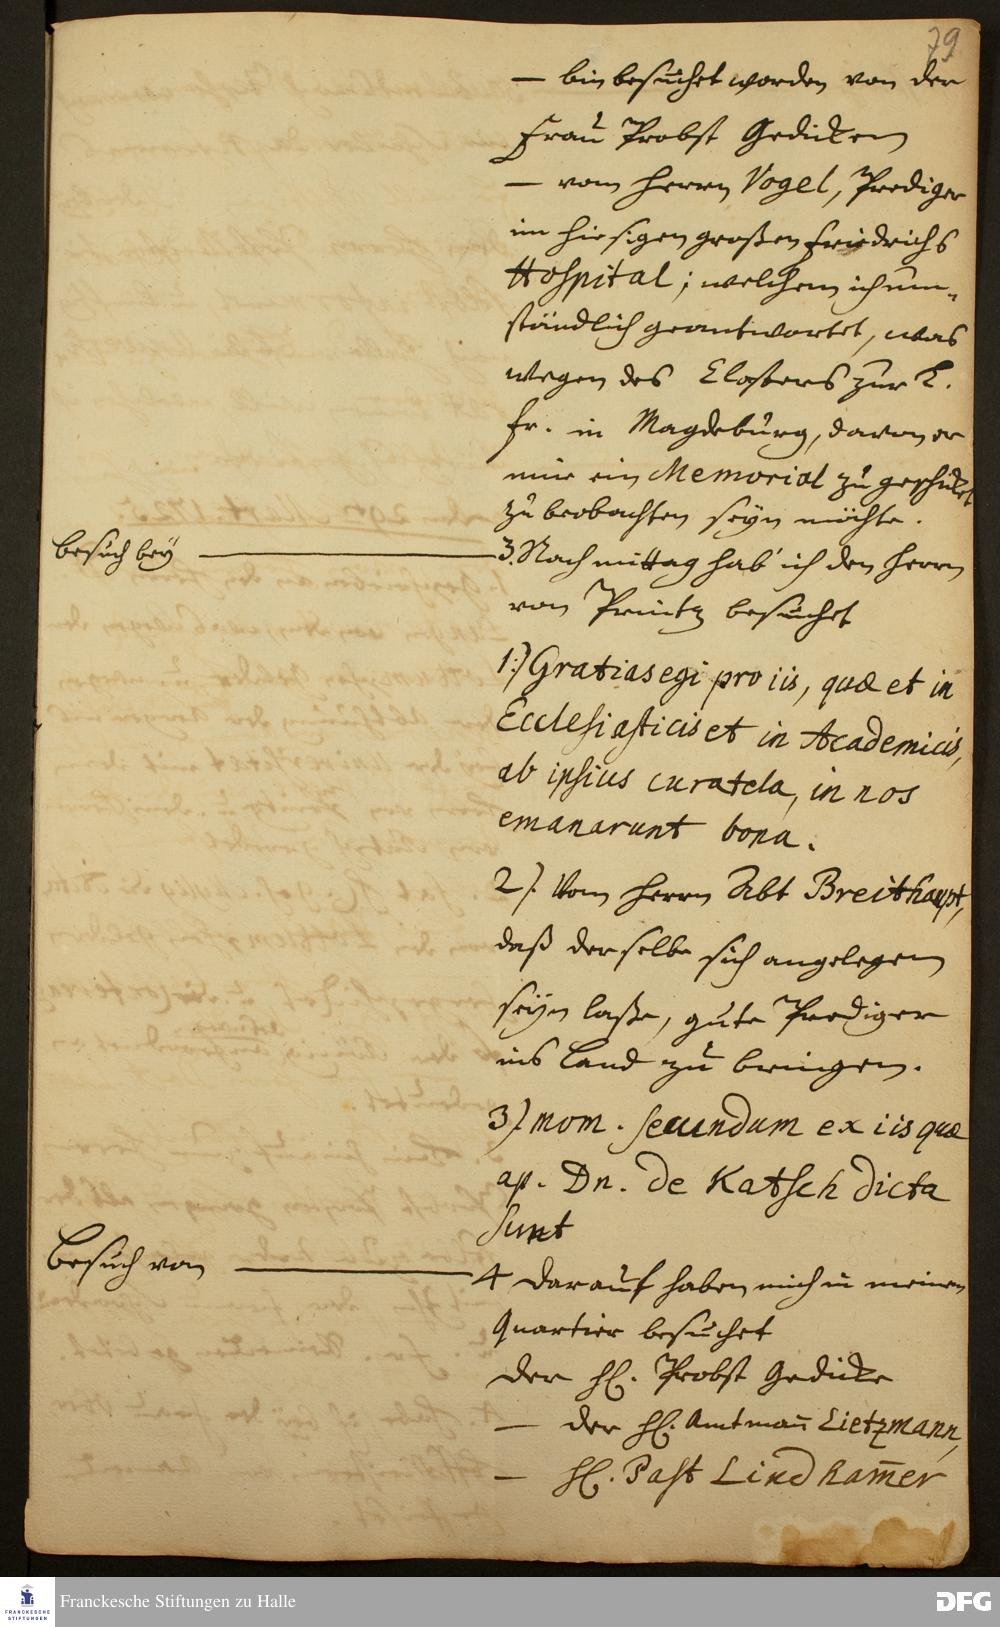 79
— bin besuchet worden von der
Frau Probst Gedicken
— vom Herrn Vogel, Prediger
im hiesigen großen Friedrichs
Hospital; welchem ich um-
ständlich geantwortet, was
wegen des Closters zur L.
Fr. in Magdeburg, davon er
mir ein Memorial zu geschicket
zu beobachten seyn möchte.
Besuch bey — 3. Nachmittag hab ich den Herrn
von Printz besuchet
1.) Gratias egi pro iis, quæ et in
Ecclesiasticis et in Academicis,
ab ipsius curatela, in nos
emanarunt bona.
2). Vom Herrn Abt Breithaupt,
daß derselbe sich angelegen
seyn laße, gute Prediger
ins Land zu bringen.
3) mom. secundum ex iis quæ
ap. Dn. de Katsch dicta
sunt
Besuch von — 4 Darauf haben mich in meinen
Quartier besuchet
der H. Probst Gedicke
— der H. Amtmañ Lietzmann,
— H. Past Lindham̃er
Franckesche Stiftungen zu Halle
FRANCKESCHE
STIFTUNGEN
DFG